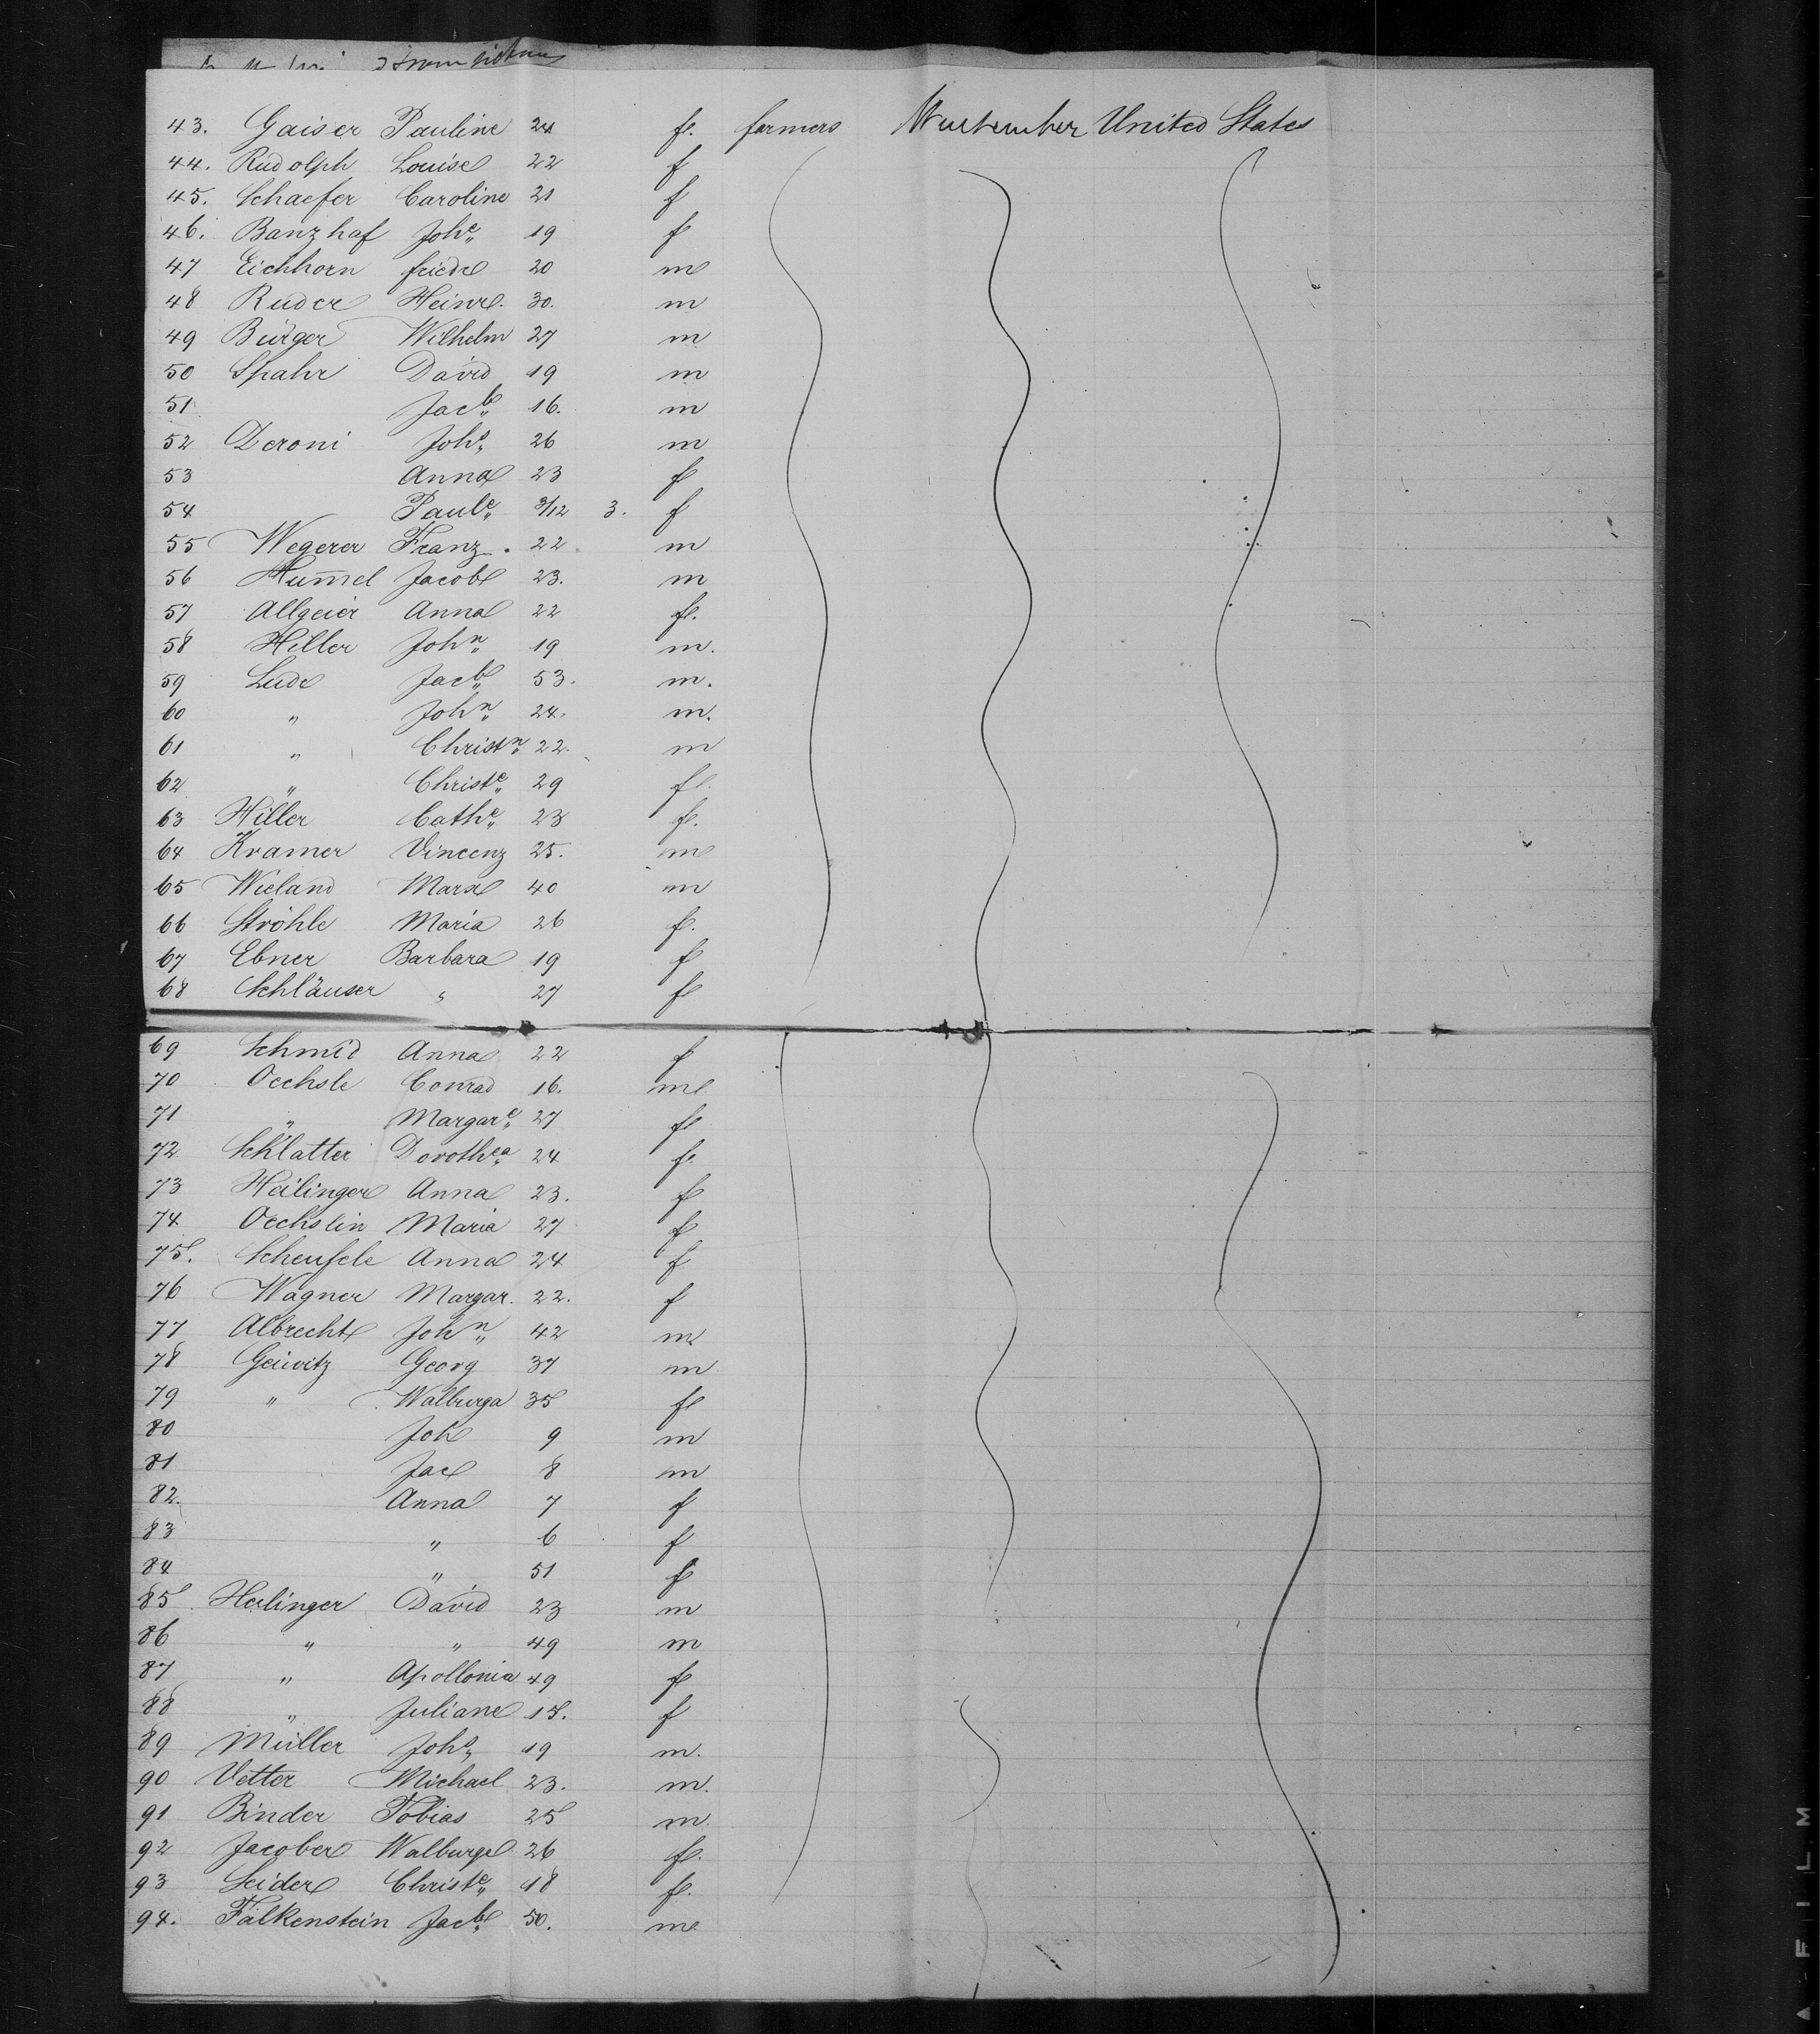 43. Gaiser Pauline 24 f. farmers Wurtember United States
44. Rudolph Louise 22 f
45. Schaefer Caroline 21 f
46. Banzhaf Johe 19 f
47 Eichhorn friedr 20 m
48 Ruder Heinr. 30. m
49 Bürger Wilhelm 27 m
50 Spahr David 19 m
51 Jacb 16. m
52 Deroni Johs 26 m
53 Anna 23 f
54 Paule 3/12 3. f
55 Wegerer Franz. 22 m
56 Hum̅el Jacob 23. m
57 Allgeier Anna 22 f.
58 Hiller John 19 m.
59 Lude Jacb 53. m.
60 " John 24. m.
61 " Christn 22. m
62 " Christe 29 f.
63 Hiller Cathe 23 f.
64 Kramer Vincenz 25. m
65 Wieland Marx 40 m
66 Ströhle Maria 26 f.
67 Ebner Barbara 19 f
68 Schläuser " 27 f
69 Schmid Anna 22 f
70 Oechsle Conrad 16. m
71 " Margare 27 f
72 Schlatter Dorothea 24 f.
73 Heilinger Anna 23. f
74 Oechslin Maria 27 f
75. Scheufele Anna 24 f
76 Wagner Margar. 22. f
77 Albrecht John 42 m
78 Geiwitz Georg 37 m
79 " Walburga 35 f
80 Joh 9 m
81 Jac 8 m
82. Anna 7 f
83 " 6 f
84 " 51 f
85 Heilinger David 23 m
86 " " 49 m
87 " Apollonia 49 f
88 " Juliane f
89 Müller Johs 19 m.
90 Vetter Michael 23. m.
91 Binder Tobias 25 m
92 Jacober Walburg 26 f.
93 Seider Christe 18 f.
94. Falkenstein Jacb 50. m
FILM